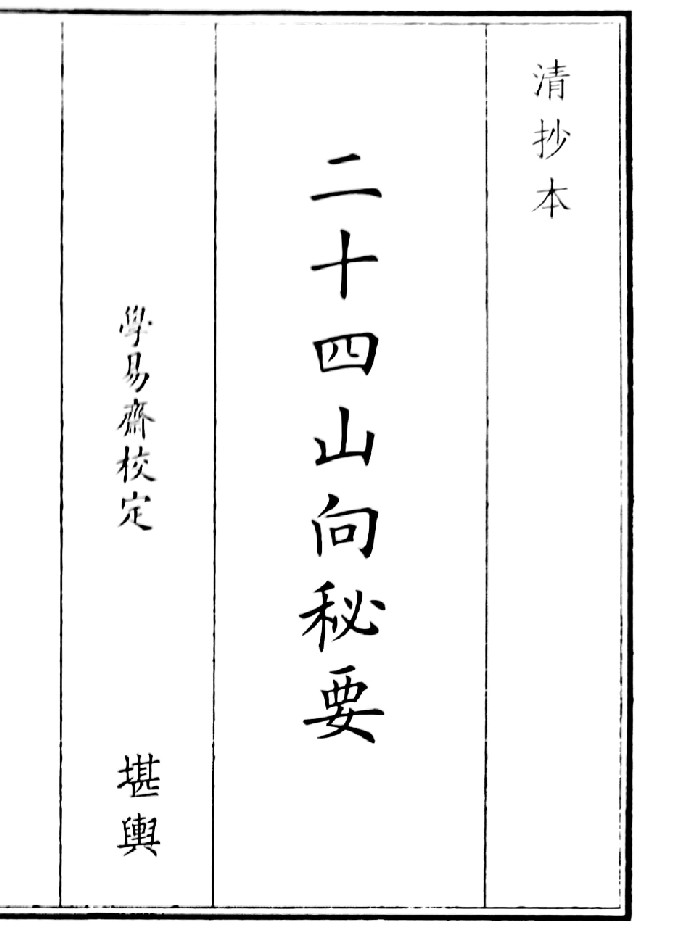 清抄本
二十四山向秘要
學易齋校定
堪輿